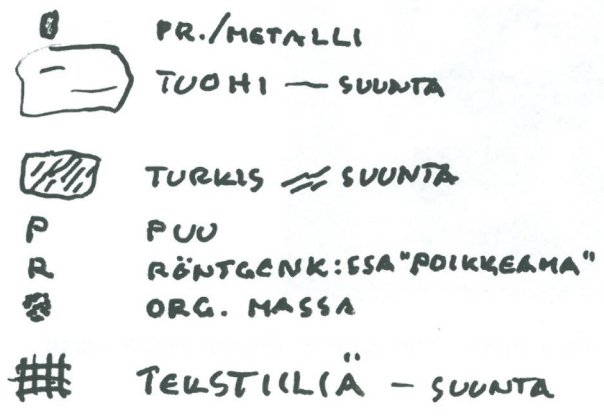 PR./METALLI
TUOHI — SUUNTA
TURKIS // SUUNTA
P PUU
R RÖNTGENK:SSA "POIKKEAMA"
ORG. MASSA
TEKSTIILIÄ – SUUNTA